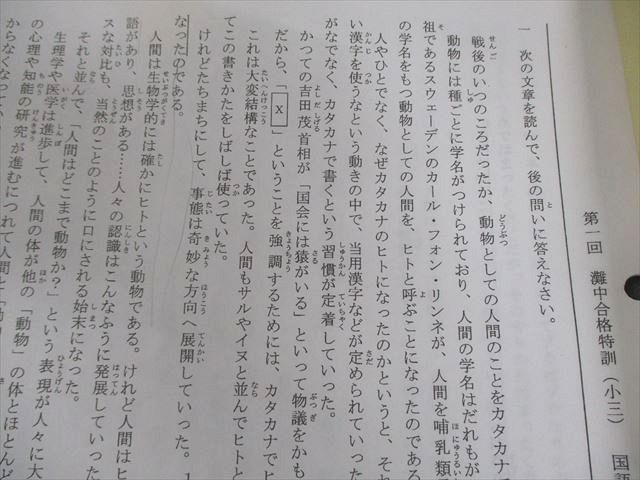 第一回 灘中合格特訓（小三） 国語
一 次の文章を読んで、後の問いに答えなさい。
戦後のいつのころだったか、動物としての人間のことをカタカナで
動物には種ごとに学名がつけられており、人間の学名はだれもが
祖であるスウェーデンのカール・フォン・リンネが、人間を哺乳類
の学名をもつ動物としての人間を、ヒトと呼ぶことになったのである
人やひとでなく、なぜカタカナのヒトになったのかというと、それ
い漢字を使うなという動きの中で、当用漢字などが定められていった
がなでなく、カタカナで書くという習慣が定着していった。
かつての吉田茂首相が「国会には猿がいる」といって物議をかも
だから、「 X 」ということを強調するためには、カタカナでヒ
これは大変結構なことであった。人間もサルやイヌと並んでヒトと
てこの書きかたをしばしば使っていた。
けれどたちまちにして、事態は奇妙な方向へ展開していった。
なったのである。
人間は生物学的には確かにヒトという動物である。けれど人間はヒ
語があり、思想がある……人々の認識はこんなふうに発展していった
スな対比も、当然のことのように口にされる始末になった。
それと並んで、「人間はどこまで動物か？」という表現が人々に大
生理学や医学は進歩して、人間の体が他の「動物」の体とほとんど
の心理や知能の研究が進むにつれて人間と「動
からなくなって